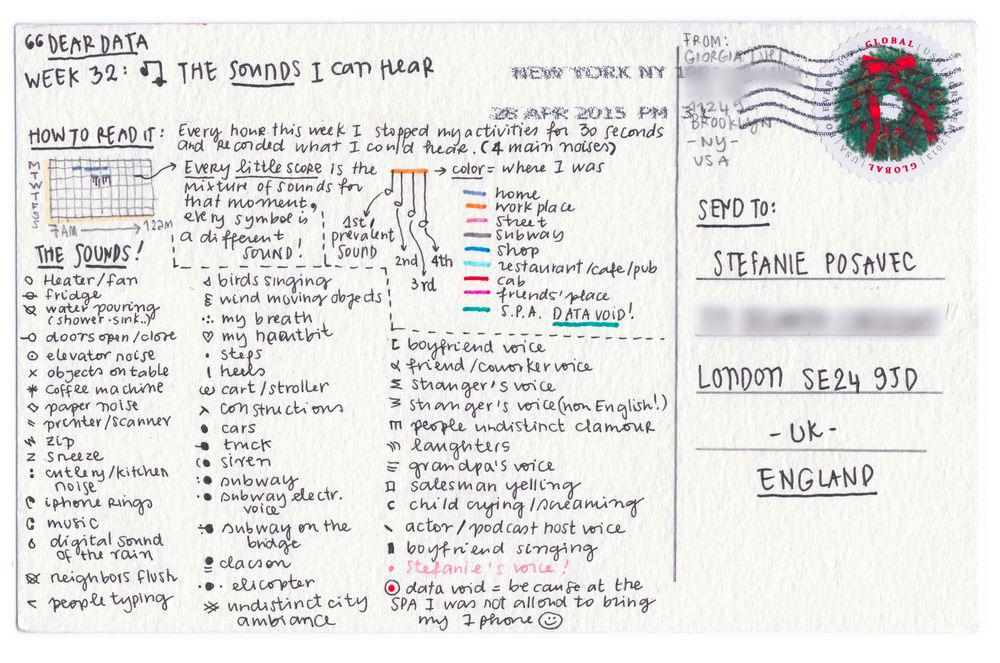 “DEAR DATA
WEEK 32: THE SOUNDS I can HeaR
HOW TO READ IT:
Every hour this week I stopped my activities for 30 seconds
and recorded what I could hear. (4 main noises)
M
T
W
T
F
S
S
7AM → 12AM
Every little score is the
mixture of sounds for
that moment,
every symbol is
a different
SOUND!
color = where I was
1st
prevalent
SOUND
2nd
3rd
4th
home
work place
street
subway
shop
restaurant/cafe/pub
cab
friends' place
S.P.A. DATA VOID!
THE SOUNDS!
Heater/fan
fridge
water pouring
(shower-sink..)
doors open/close
elevator noise
objects on table
coffee machine
paper noise
printer/scanner
zip
sneeze
cutlery/kitchen
noise
iphone rings
music
digital sound
of the rain
neighbors flush
people typing
birds singing
wind moving objects
my breath
my heartbit
steps
heels
cart/stroller
constructions
cars
truck
siren
subway
subway electr.
voice
subway on the
bridge
clacson
elicopter
undistinct city
ambiance
boyfriend voice
friend/coworker voice
stranger's voice
stranger's voice (non English!)
people undistinct clamour
laughters
grandpa's voice
salesman yelling
child crying/screaming
actor/podcast host voice
boyfriend singing
Stefanie's voice!
data void = because at the
SPA I was not allowd to bring
my Iphone
NEW YORK NY
28 APR 2015 PM
FROM:
GIORGIA LUPI
11249
BROOKLYN
-NY-
USA
GLOBAL
GLOBAL
USA
2013
SEND TO:
STEFANIE POSAVEC
LONDON SE24 9JD
-UK-
ENGLAND